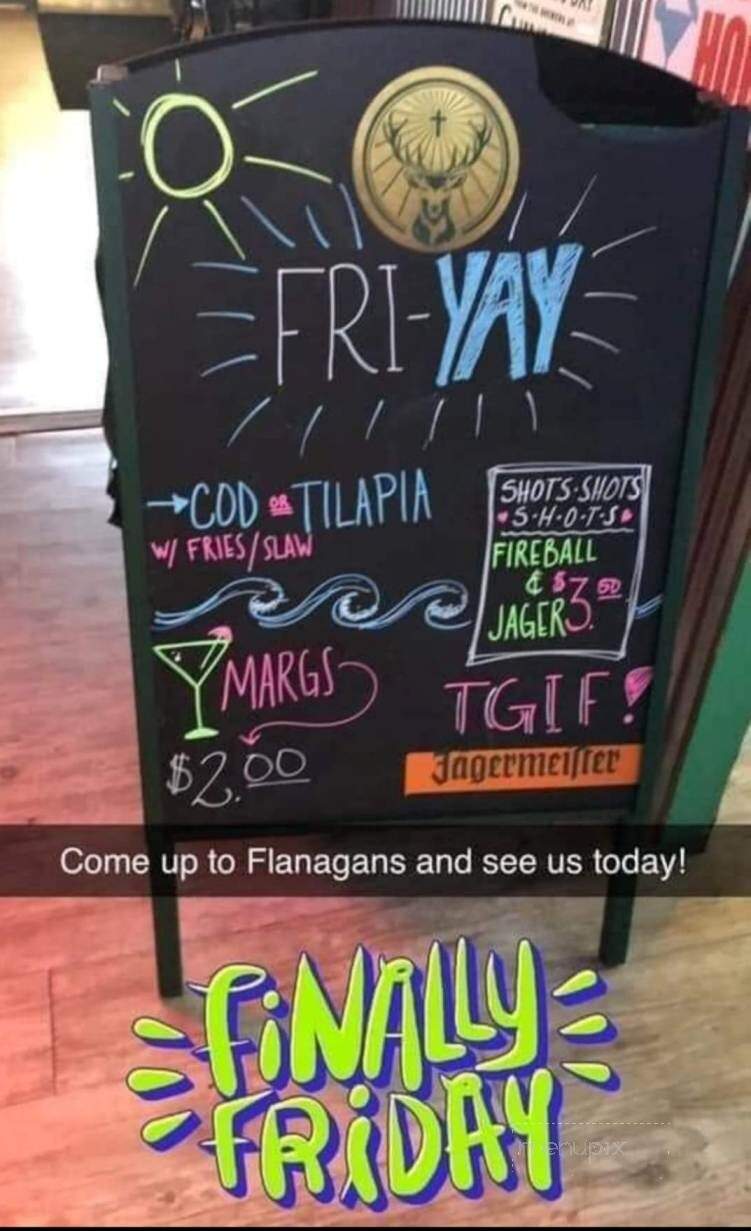 HO
FRI-YAY
→COD OR TILAPIA
W/ FRIES/SLAW
SHOTS·SHOTS
S·H·O·T·S
FIREBALL
& $3.50
JAGER
MARGS
$2.00
TGIF!
Jägermeister
Come up to Flanagans and see us today!
FiNALLY
FRiDAY
menupix